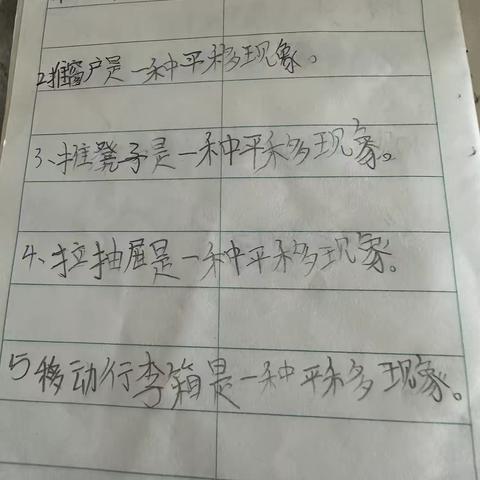 2.推窗户是一种平移现象。
3、推凳子是一种平移现象。
4、拉抽屉是一种平移现象。
5移动行李箱是一种平移现象。